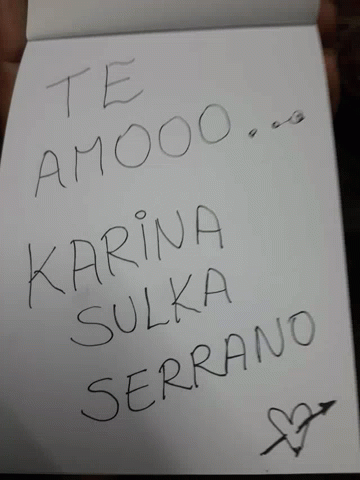 TE
AMOOO...
KARiNA
SULKA
SERRANO